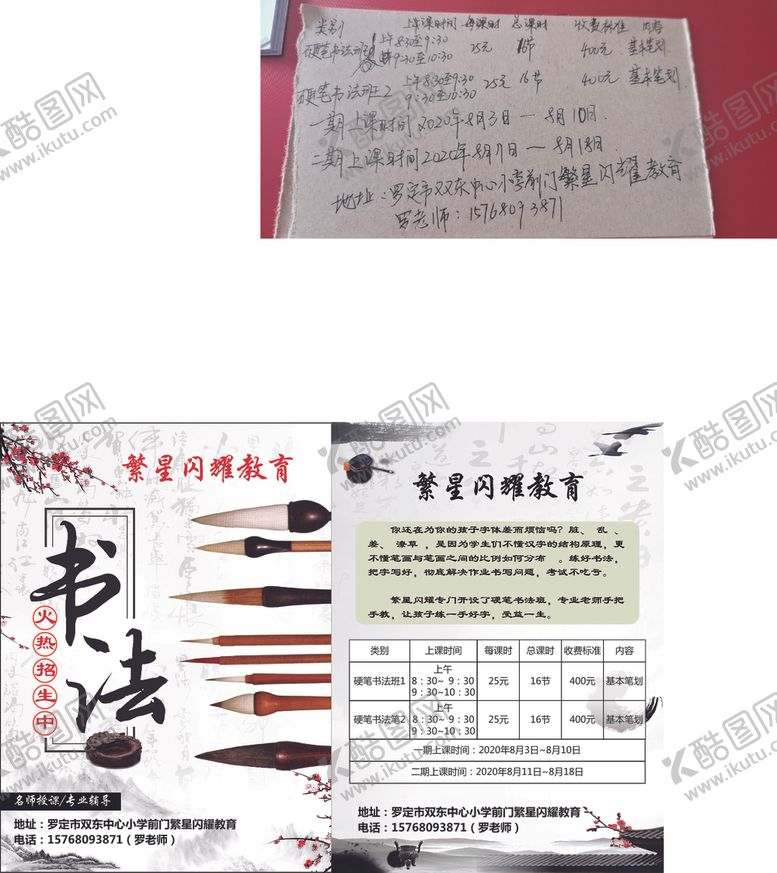 类别 上课时间 每课时 总课时 收费标准 内容
硬笔书法班1 上午8:30至9:30 25元 16节 400元 基本笔划
9:30至10:30
硬笔书法班2 上午8:30至9:30 25元 16节 400元 基本笔划
9:30至10:30
一期上课时间2020年8月3日—8月10日
二期上课时间2020年8月11日—8月18日
地址:罗定市双东中心小学前门繁星闪耀教育
罗老师:15768093871
繁星闪耀教育
书法
火热招生中
名师授课/专业辅导
地址:罗定市双东中心小学前门繁星闪耀教育
电话:15768093871(罗老师)
繁星闪耀教育
你还在为你的孩子字体差而烦恼吗?脏、乱、
差、潦草,是因为学生们不懂汉字的结构原理,更
不懂笔画与笔画之间的比例如何分布 。练好书法,
把字写好,彻底解决作业书写问题,考试不吃亏。
繁星闪耀专门开设了硬笔书法班,专业老师手把
手教,让孩子练一手好字,受益一生。
类别 上课时间 每课时 总课时 收费标准 内容
上午
硬笔书法班1 8:30~ 9:30 25元 16节 400元 基本笔划
9:30~10:30
上午
硬笔书法笔2 8:30~ 9:30 25元 16节 400元 基本笔划
9:30~10:30
一期上课时间:2020年8月3日~8月10日
二期上课时间:2020年8月11日~8月18日
地址:罗定市双东中心小学前门繁星闪耀教育
电话:15768093871(罗老师)
酷图网
www.ikutu.com